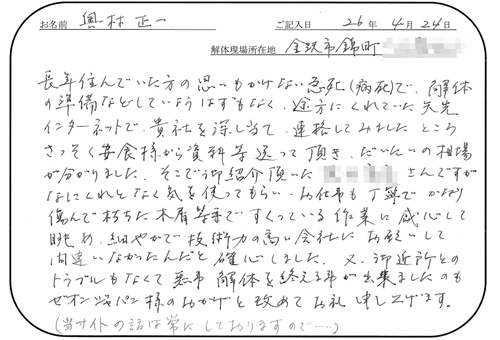 お名前 奥村正一 ご記入日 26年 4月 24日
解体現場所在地 金沢市錦町
長年住んでいた方の思いもかけない急死(病死)で、解体
の準備などしているはずもなく、途方にくれていた矢先
インターネットで、貴社を探し当て、連絡してみました ところ
さっそく安食様から資料等送って頂き、だいたいの相場
が分かりました。そこで御紹介頂いた さんですが
なにくれとなく気を使ってもらい、お仕事も丁寧で かなり
傷んで朽ちた木屑等手ですくっている作業に感心して
眺め、細やかで技術力の高い会社に お願いして
間違いなかったんだと確心しました。又、御近所との
トラブルもなくて無事解体を終える事が出来ましたのも
ゼオンジャパン様のおかげと改めてお礼申し上げます。
(当サイトの話は常にしておりますので……)